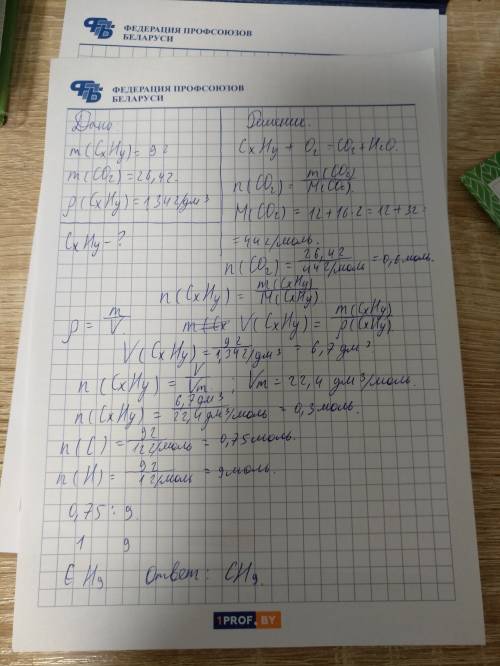 ФЕДЕРАЦИЯ ПРОФСОЮЗОВ
БЕЛАРУСИ
ФЕДЕРАЦИЯ ПРОФСОЮЗОВ
БЕЛАРУСИ
Дано:
m(CxHy)=9г
m(CO₂)=26,4г.
ρ(CxHy)=1,34г/дм³
CxHy-?
Решение.
CxHy + O₂ = CO₂ + H₂O.
n(CO₂) = m(CO₂)/M(CO₂).
M(CO₂) = 12+16·2=12+32=
=44г/моль.
n(CO₂) = 26,4г/44г/моль = 0,6моль.
n(CxHy) = m(CxHy)/M(CxHy)
ρ = m/V V(CxHy) = m(CxHy)/ρ(CxHy).
V(CxHy) = 9г/1,34г/дм³ = 6,7дм³
n(CxHy) = V/Vm ; Vm = 22,4 дм³/моль.
n(CxHy) = 6,7дм³/22,4дм³/моль = 0,3моль.
n(C) = 9г/12г/моль = 0,75моль.
n(H) = 9г/1г/моль = 9моль.
0,75 : 9
1 9
C H₉ Ответ: CH₉.
1PROF.BY